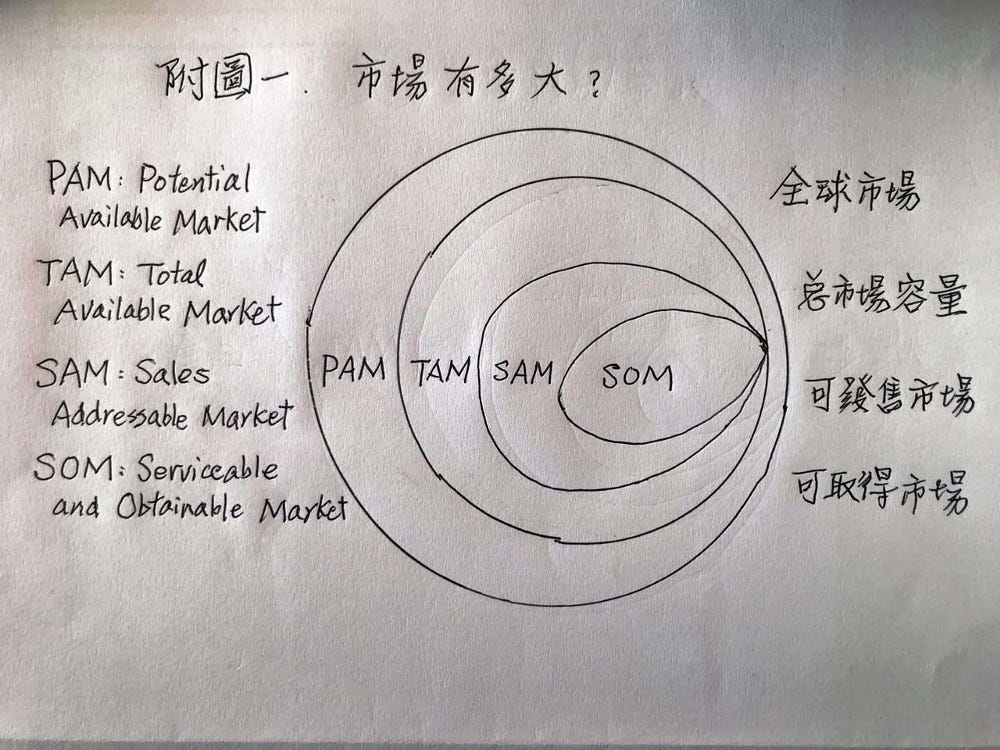 附圖一. 市場有多大?
PAM: Potential
Available Market
TAM: Total
Available Market
SAM: Sales
Addressable Market
SOM: Serviceable
and Obtainable Market
PAM TAM SAM SOM
全球市場
总市場容量
可發售市場
可取得市場